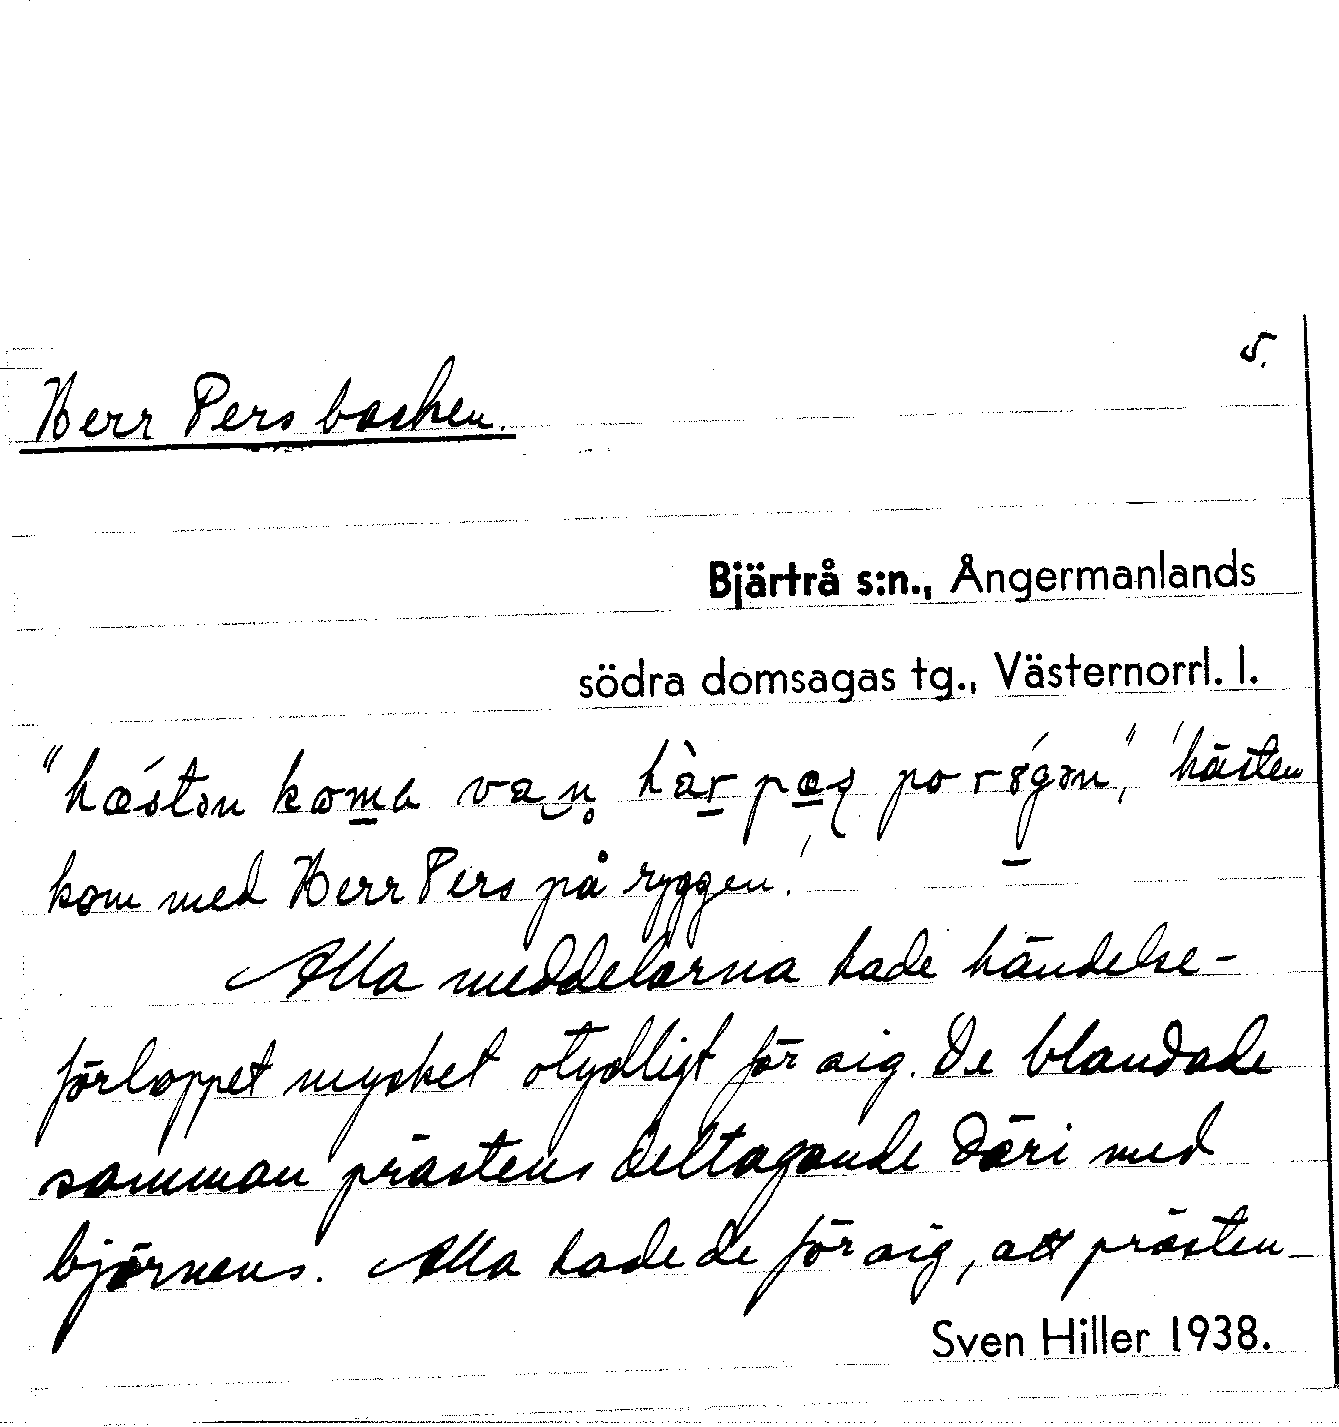 5.
Herr Persbacken.
Bjärtrå s:n., Ångermanlands
södra domsagas tg., Västernorrl. l.
'hästen
kom med Herr Pers på ryggen.'
Alla meddelarna hade händelse-
förloppet mycket otydligt för sig. De blandade
samman prästens deltagande däri med
björnens. Alla hade de för sig, att prästen
Sven Hiller 1938.